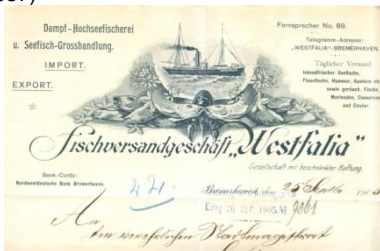 Dampf-Hochseefischerei
u. Seefisch-Grosshandlung.
IMPORT.
EXPORT.
Fernsprecher No. 89.
Telegramm-Adresse:
„WESTFALIA“-BREMERHAVEN.
Täglicher Versand
lebendfrischer Seefische,
Flussfische, Hummer, Austern etc.
sowie geräuch. Fische,
Marinaden, Conserven
und Caviar.
Fischversandgeschäft „Westfalia“
Gesellschaft mit beschränkter Haftung.
Bank-Conto:
Nordwestdeutsche Bank Bremerhaven.
Bremerhaven, 25
Eing. 26. SEP. 1905. M
An